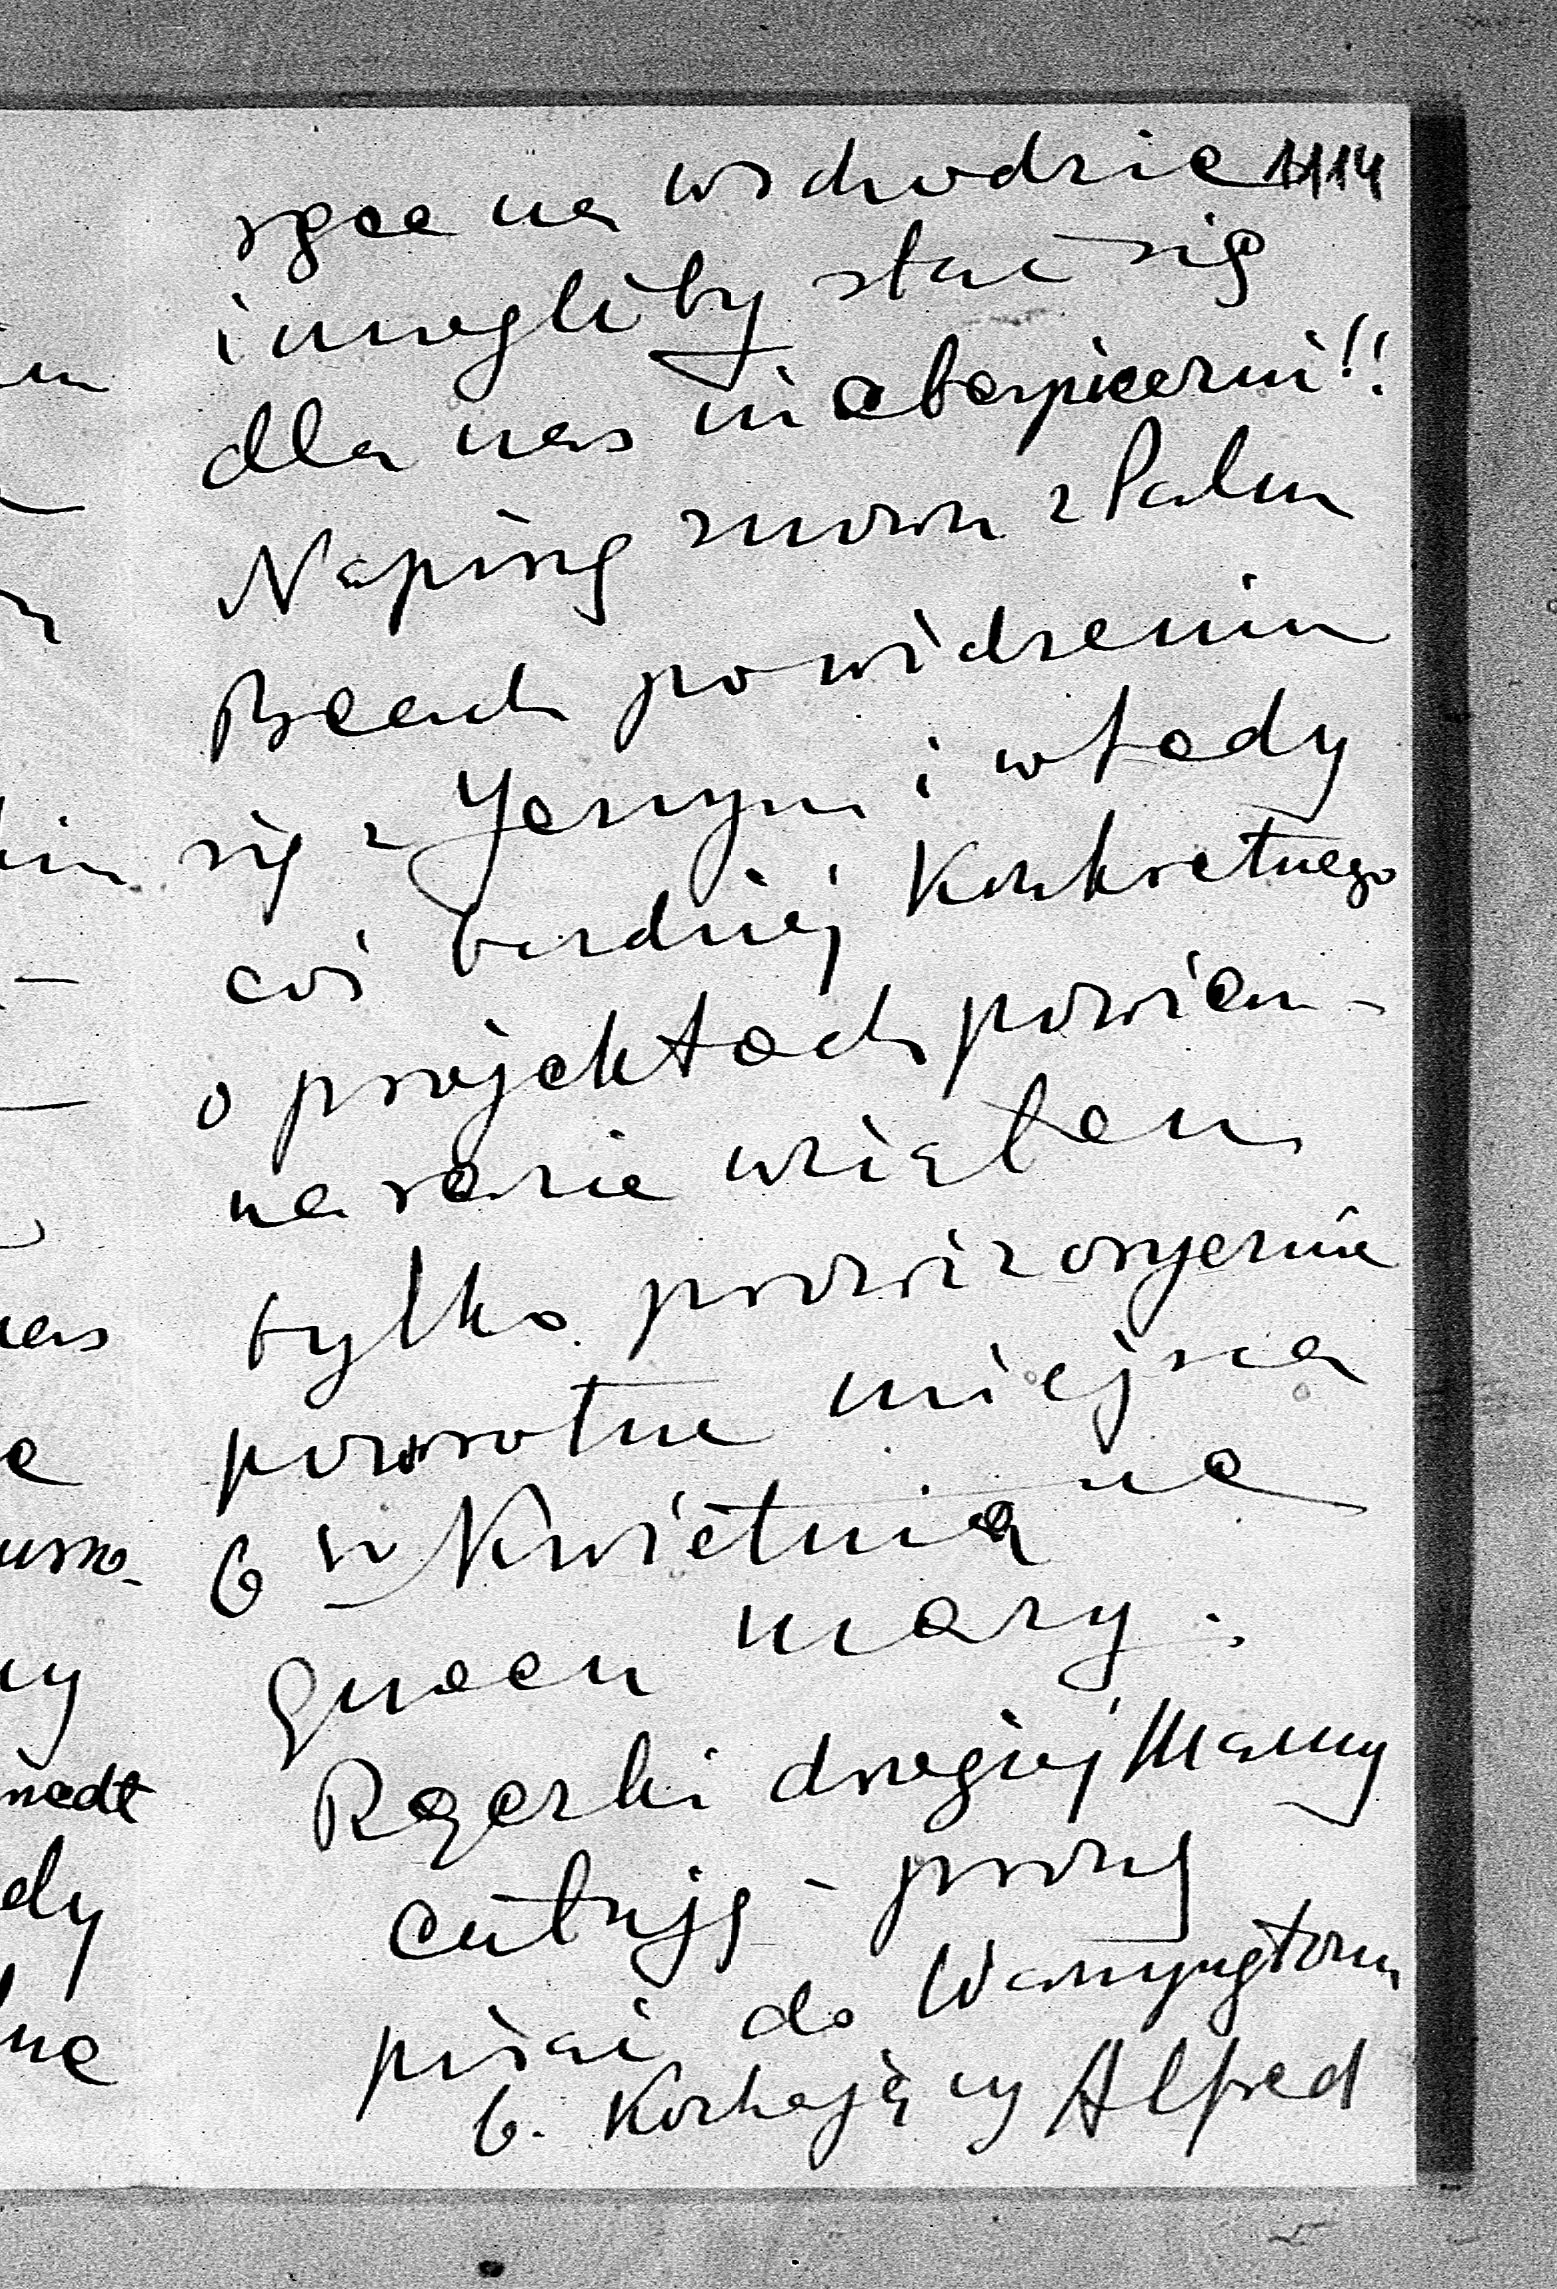 ręce na wschodzie 1114
i mogliby stać się
dla nas niebezpieczni!!
Napiszę znowu z Palm
Beach po widzeniu
się z Jerzym i wtedy
coś bardziej konkretnego
o projektach powiem -
na razie wziąłem
tylko prowizorycznie
powrotne miejsca
6 w Kwietniu na
Queen Mary.
Rączki drogiej Mamy
całuję - proszę
pisać do Waszyngtonu
b. Kochający Alfred